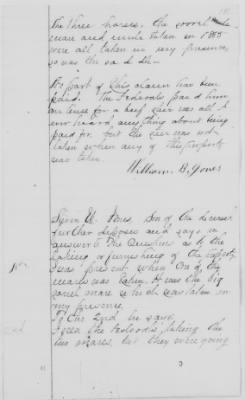 the three horses, the sorrel
mare and mule taken in 1863
were all taken in my presence
so was the saddle
No part of this claim has been
paid. The Federals paid him
once for a beef steer was all I
ever heard, anything about being
paid for, but the steer was not
taken when any of this property
was taken.
William B. Jones
son of the deceased
further deposes and says in
answer to the Questions as to the
taking or furnishing of the property
I was present when one of the
mares was taken. It was the big
sorrel mare which was taken in
my presence.
To the 2nd he says
I seed the taking the
two mares, but they were going